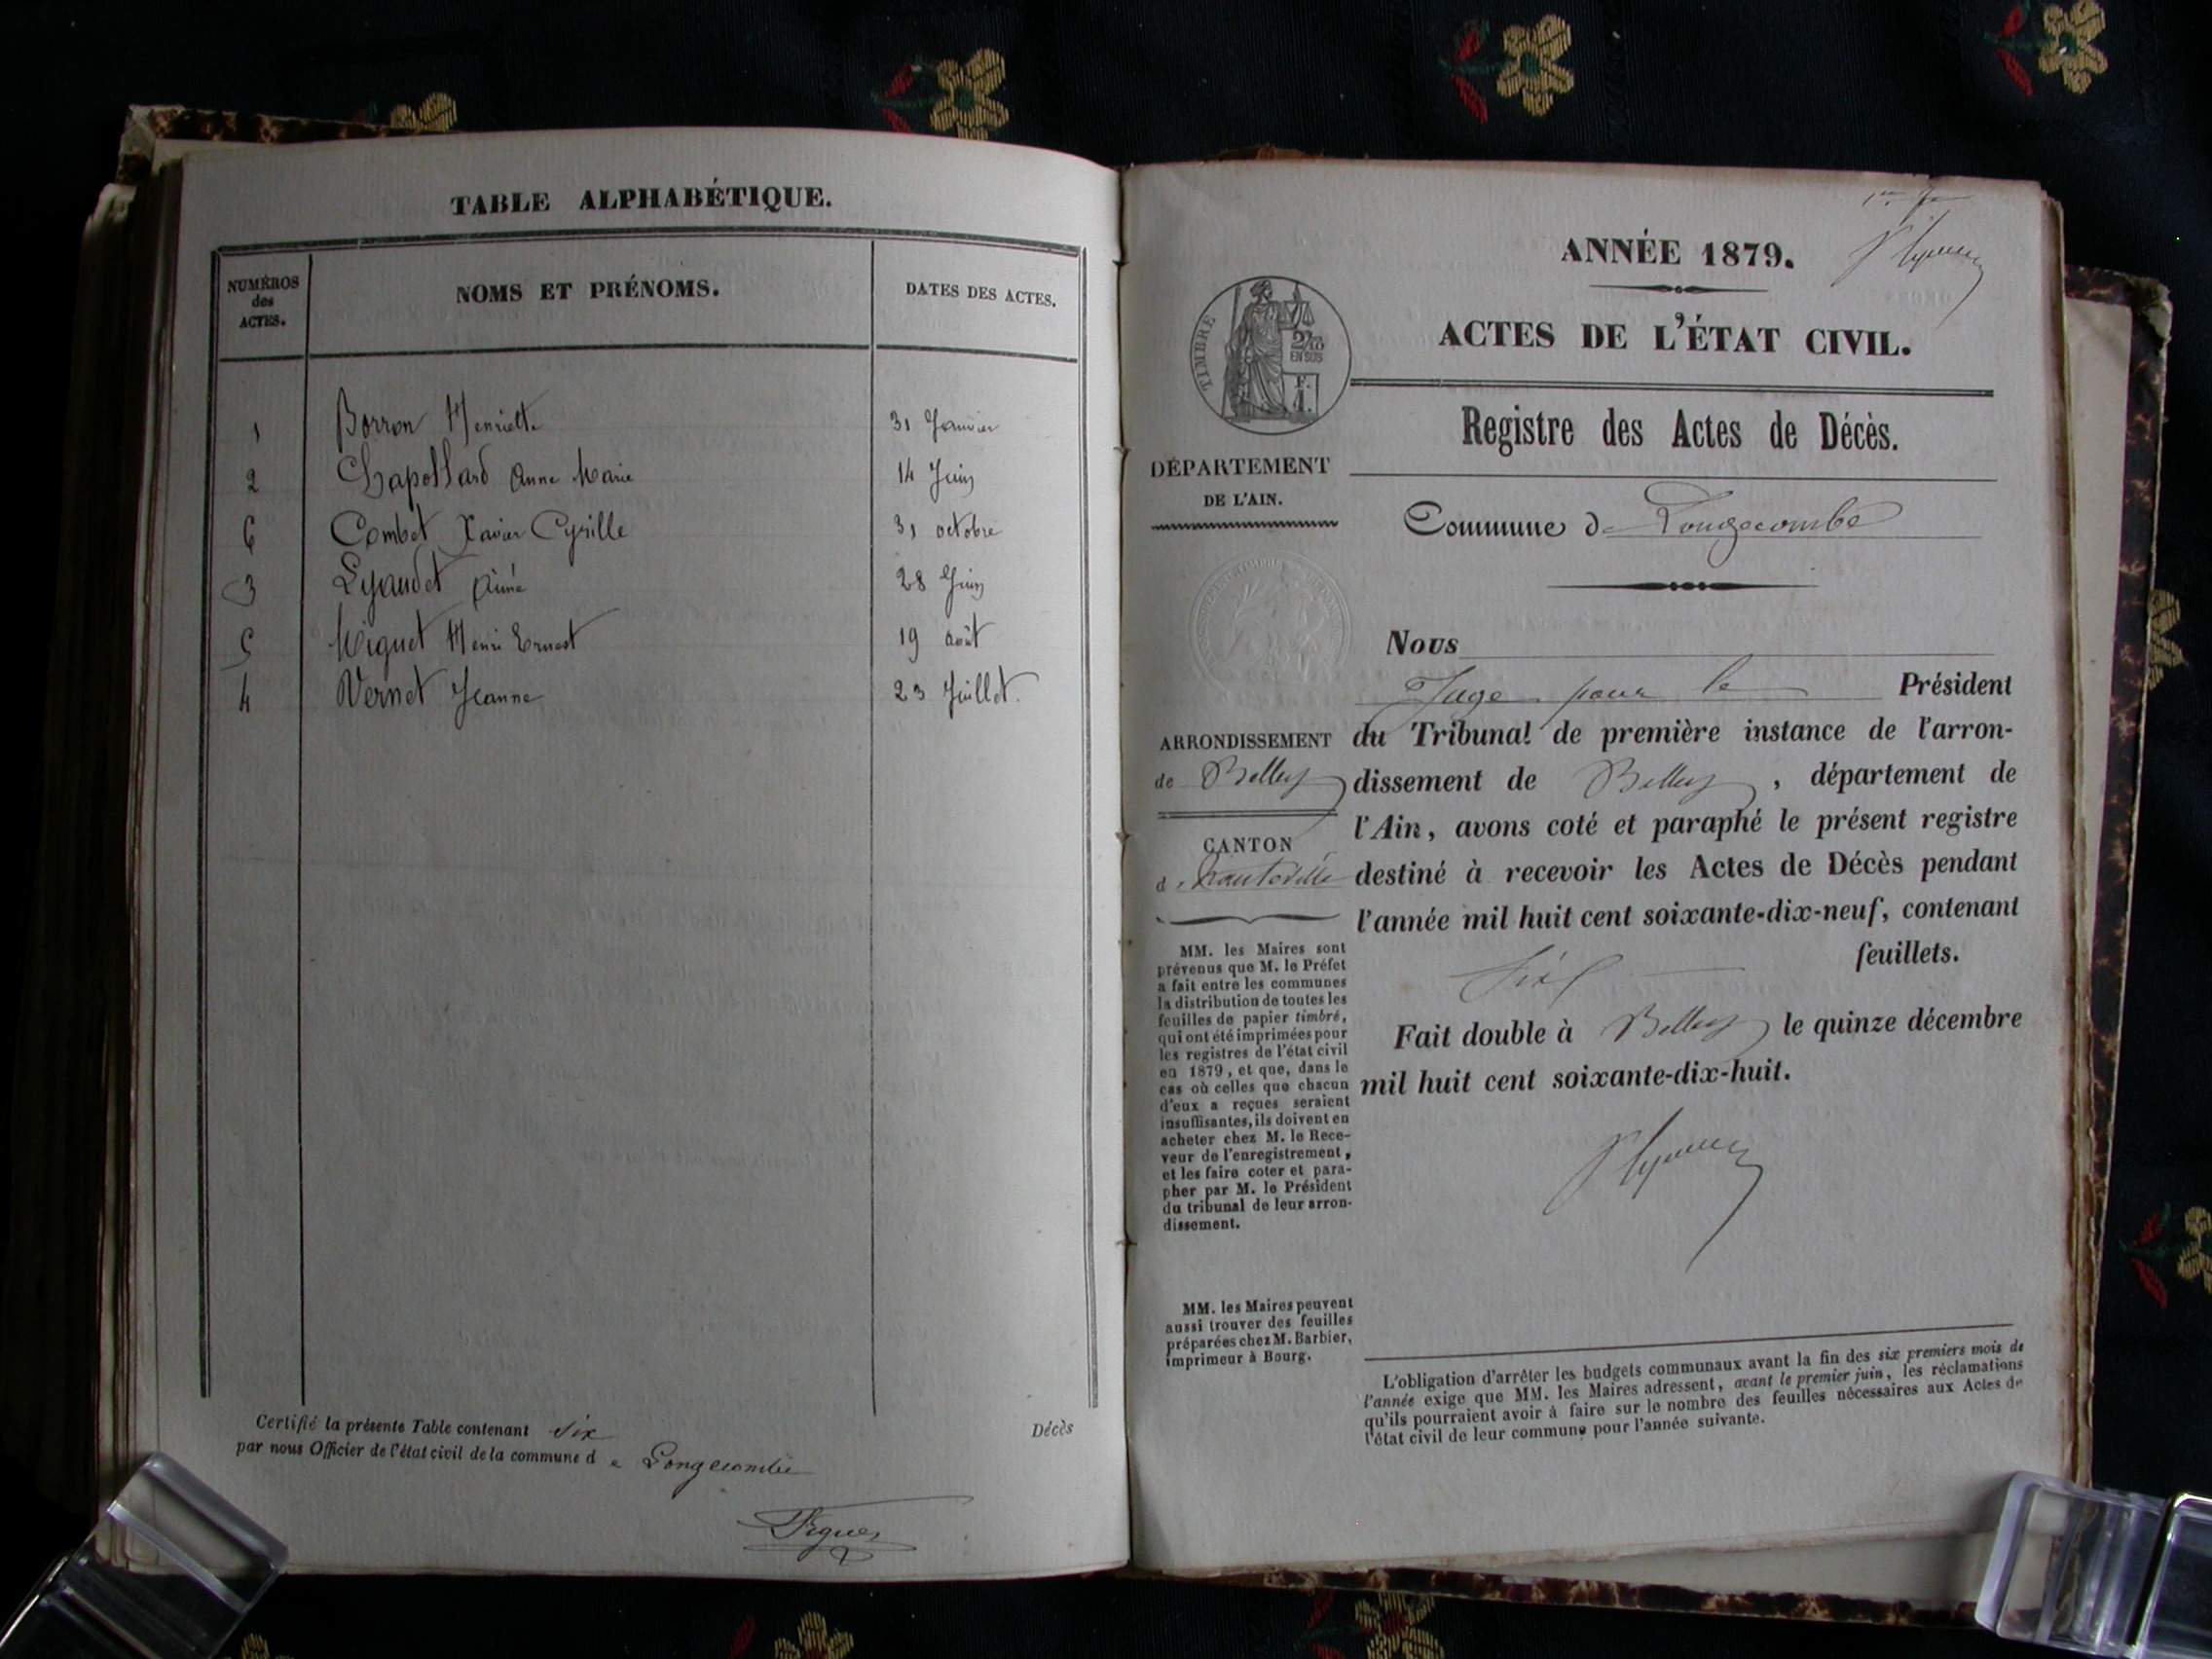 TABLE ALPHABÉTIQUE.
NUMÉROS des ACTES.
NOMS ET PRÉNOMS.
DATES DES ACTES.
1 Borron Henriette 31 Janvier
2 Chapollard Anne Marie 14 Juin
6 Combet Xavier Cyrille 31 octobre
3 Lyaudet Aimé 28 Juin
5 Miguet Henri Ernest 19 août
4 Vernet Jeanne 23 Juillet.
Certifié la présente Table contenant six Décès
par nous Officier de l'état civil de la commune de Longecombe
ANNÉE 1879.
ACTES DE L'ÉTAT CIVIL.
TIMBRE
2/10
EN SUS
F.
1.
Registre des Actes de Décès.
DÉPARTEMENT
DE L'AIN.
Commune de Longecombe
Nous
Juge pour le Président
ARRONDISSEMENT
de Belley
CANTON
d'hauteville
du Tribunal de première instance de l'arron-
dissement de Belley, département de
l'Ain, avons coté et paraphé le présent registre
destiné à recevoir les Actes de Décès pendant
l'année mil huit cent soixante-dix-neuf, contenant
Six feuillets.
Fait double à Belley le quinze décembre
mil huit cent soixante-dix-huit.
MM. les Maires sont
prévenus que M. le Préfet
a fait entre les communes
la distribution de toutes les
feuilles de papier timbré,
qui ont été imprimées pour
les registres de l'état civil
en 1879, et que, dans le
cas où celles que chacun
d'eux a reçues seraient
insuffisantes, ils doivent en
acheter chez M. le Rece-
veur de l'enregistrement,
et les faire coter et para-
pher par M. le Président
du tribunal de leur arron-
dissement.
MM. les Maires peuvent
aussi trouver des feuilles
préparées chez M. Barbier,
imprimeur à Bourg.
L'obligation d'arrêter les budgets communaux avant la fin des six premiers mois de
l'année exige que MM. les Maires adressent, avant le premier juin, les réclamations
qu'ils pourraient avoir à faire sur le nombre des feuilles nécessaires aux Actes de
l'état civil de leur commune pour l'année suivante.